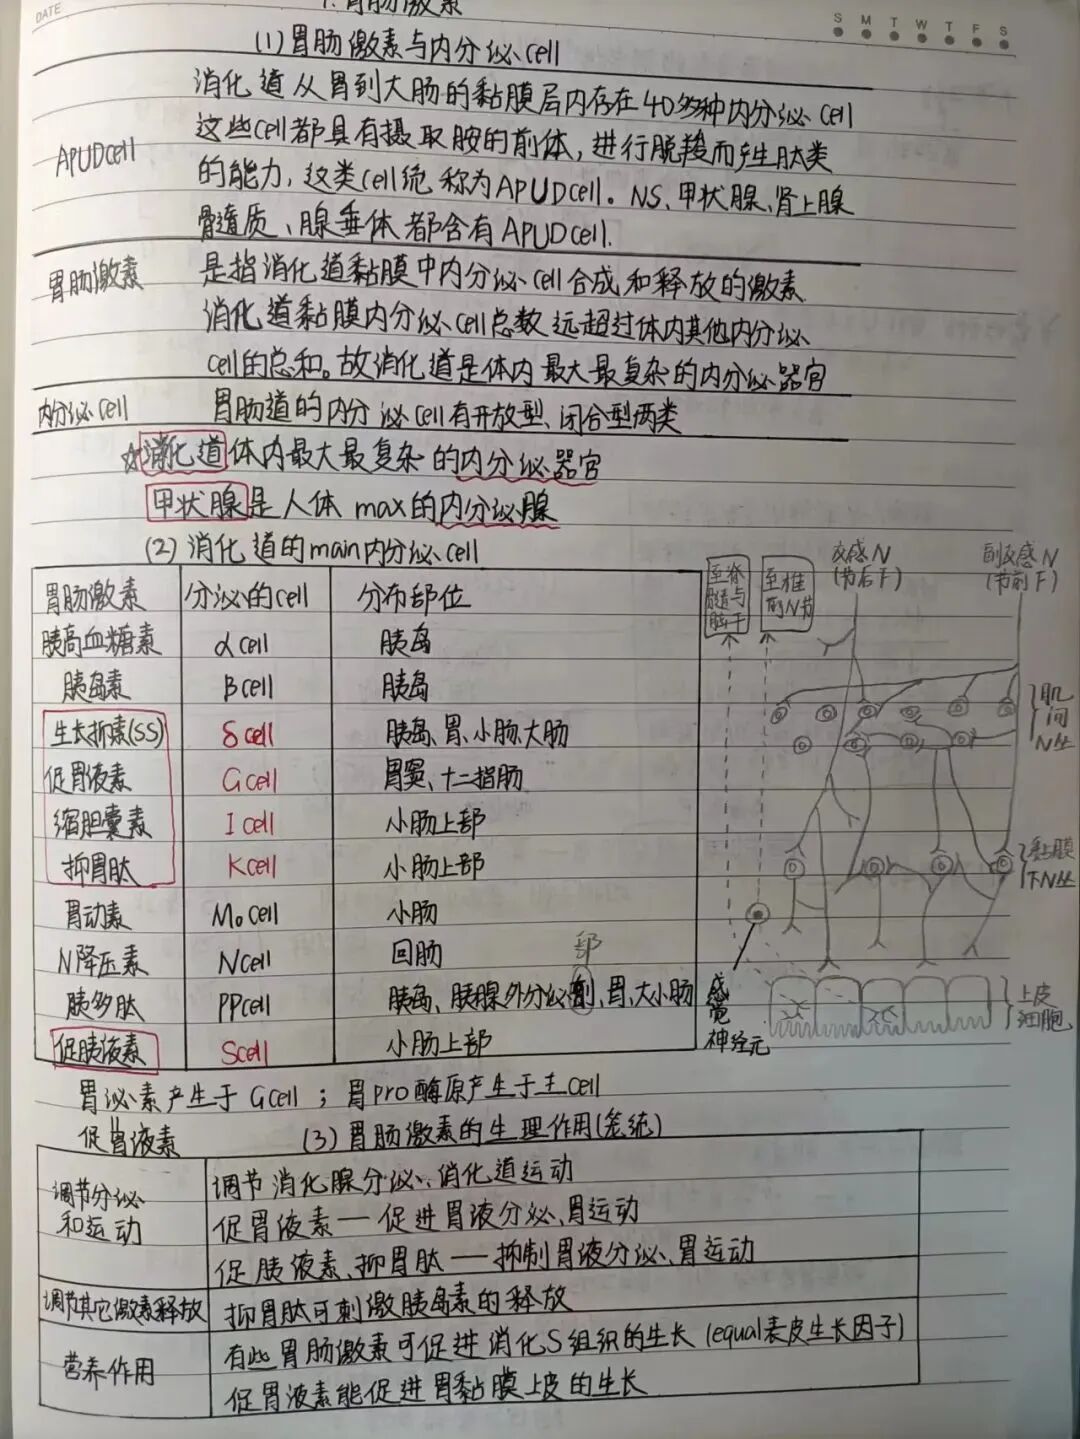 DATE
S M T W T F S
1. 胃肠激素
(1)胃肠激素与内分泌cell
消化道从胃到大肠的黏膜层内存在40多种内分泌cell
APUDcell
这些cell都具有摄取胺的前体，进行脱羧而产生肽类
的能力，这类cell统称为APUDcell。NS、甲状腺、肾上腺
髓质、腺垂体都含有APUDcell.
胃肠激素
是指消化道黏膜中内分泌cell合成和释放的激素
消化道黏膜内分泌cell总数远超过体内其他内分泌
cell的总和。故消化道是体内最大最复杂的内分泌器官
内分泌cell 胃肠道的内分泌cell有开放型、闭合型两类
☆消化道体内最大最复杂的内分泌器官
甲状腺是人体max的内分泌腺
(2)消化道的main内分泌cell
胃肠激素 分泌的cell 分布部位
胰高血糖素 αcell 胰岛
胰岛素 βcell 胰岛
生长抑素(SS) δcell 胰岛、胃、小肠、大肠
促胃液素 Gcell 胃窦、十二指肠
缩胆囊素 Icell 小肠上部
抑胃肽 Kcell 小肠上部
胃动素 Mocell 小肠
N降压素 Ncell 回肠
部
胰多肽 PPcell 胰岛、胰腺外分泌、胃、大小肠
促胰液素 Scell 小肠上部
至脊髓与脑干
至椎前N节
交感N
(节后F)
副交感N
(节前F)
肌间N丛
黏膜下N丛
感觉神经元
上皮细胞
胃泌素产生于Gcell；胃pro酶原产生于主cell
促胃液素
(3)胃肠激素的生理作用(笼统)
调节分泌和运动
调节消化腺分泌、消化道运动
促胃液素—促进胃液分泌、胃运动
促胰液素、抑胃肽—抑制胃液分泌、胃运动
调节其它激素释放 抑胃肽可刺激胰岛素的释放
营养作用
有些胃肠激素可促进消化S组织的生长(equal表皮生长因子)
促胃液素能促进胃黏膜上皮的生长